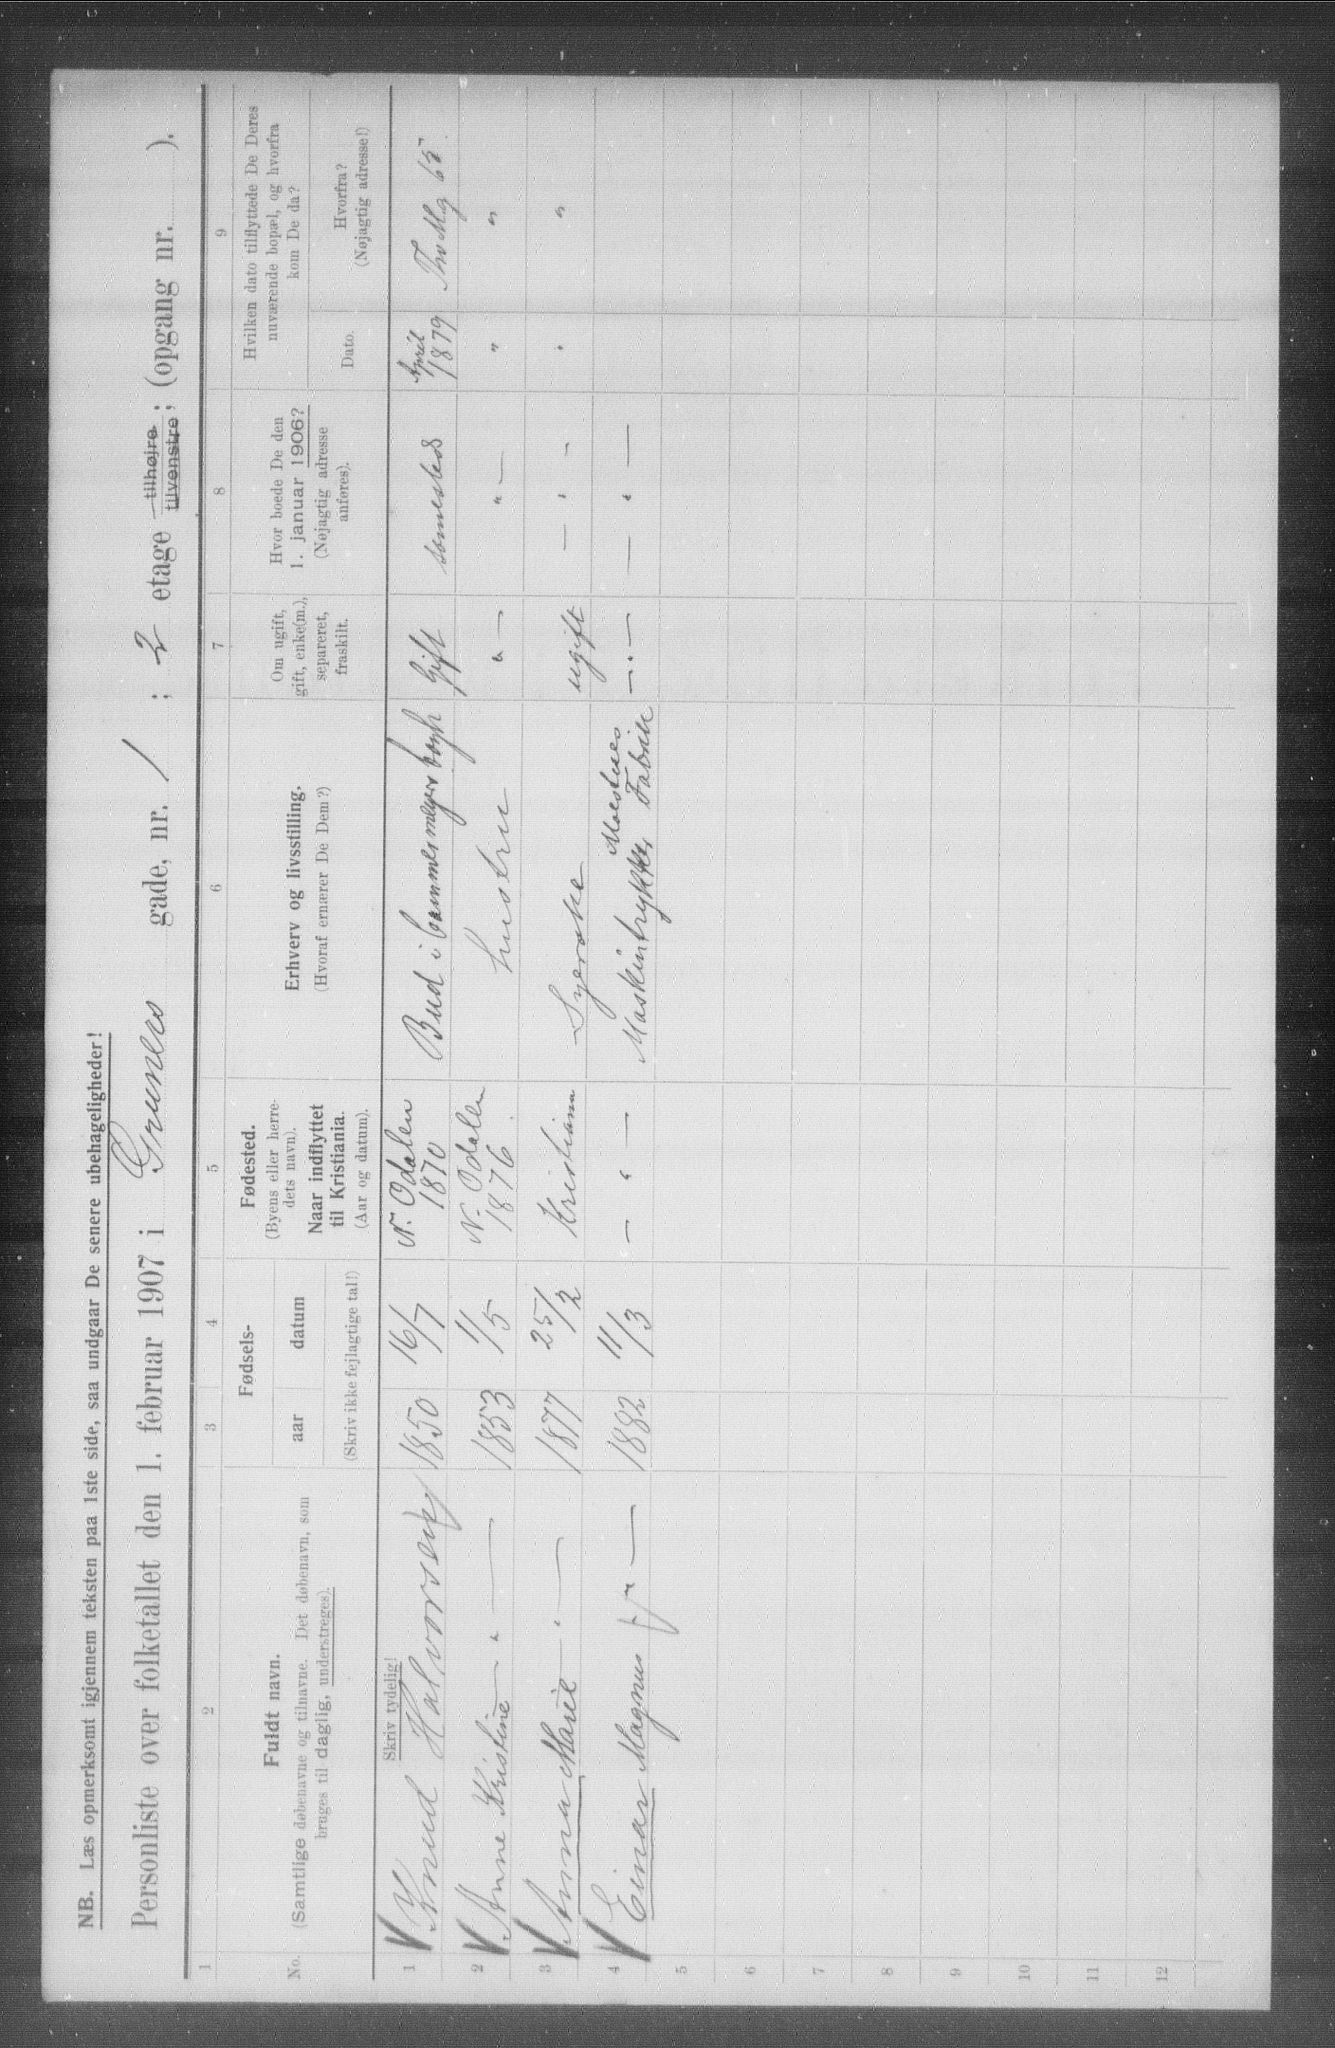 NB. Læs opmerksomt igjennem teksten paa 1ste side, saa undgaar De senere ubehageligheder!
Personliste over folketallet den 1. februar 1907 i Gruners gade, nr. 1 ; 2 etage tilhøjre tilvenstre; (opgang nr. ).
1 2 3 4 5 6 7 8 9
No.
Fuldt navn.
(Samtlige døbenavne og tilnavne. Det døbenavn, som
bruges til daglig, understreges).
Fødsels-
aar datum
(Skriv ikke fejlagtige tal!)
Fødested.
(Byens eller herre-
dets navn).
Naar indflyttet
til Kristiania.
(Aar og datum).
Erhverv og livsstilling.
(Hvoraf ernærer De Dem?)
Om ugift,
gift, enke(m.),
separeret,
fraskilt.
Hvor boede De den
1. januar 1906?
(Nøjagtig adresse
anføres).
Hvilken dato tilflyttede De Deres
nuværende bopæl, og hvorfra
kom De da?
Dato.
Hvorfra?
(Nøjagtig adresse!)
Skriv tydelig!
1 Knud Halvorsen 1850 16/7 N. Odalen 1870 Bud i Cammermeyers Gift samesteds April 1879 Tho Mg 65
2 Anne Kristine — " — 1853 1/5 N. Odalen 1876 hustru " — " — " "
3 Anna Marie — " — 1877 25/2 Kristiania Syerske ugift — " — " "
4 Einar Magnus — " — 1882 11/3 — " — Maskintrykker Moestues Fabrik — " — — " —
5
6
7
8
9
10
11
12